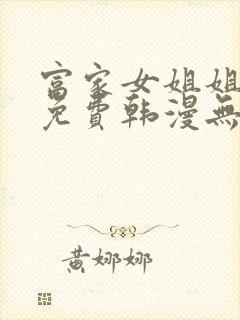 富家女姐姐
免費韩漫無
黄娜娜